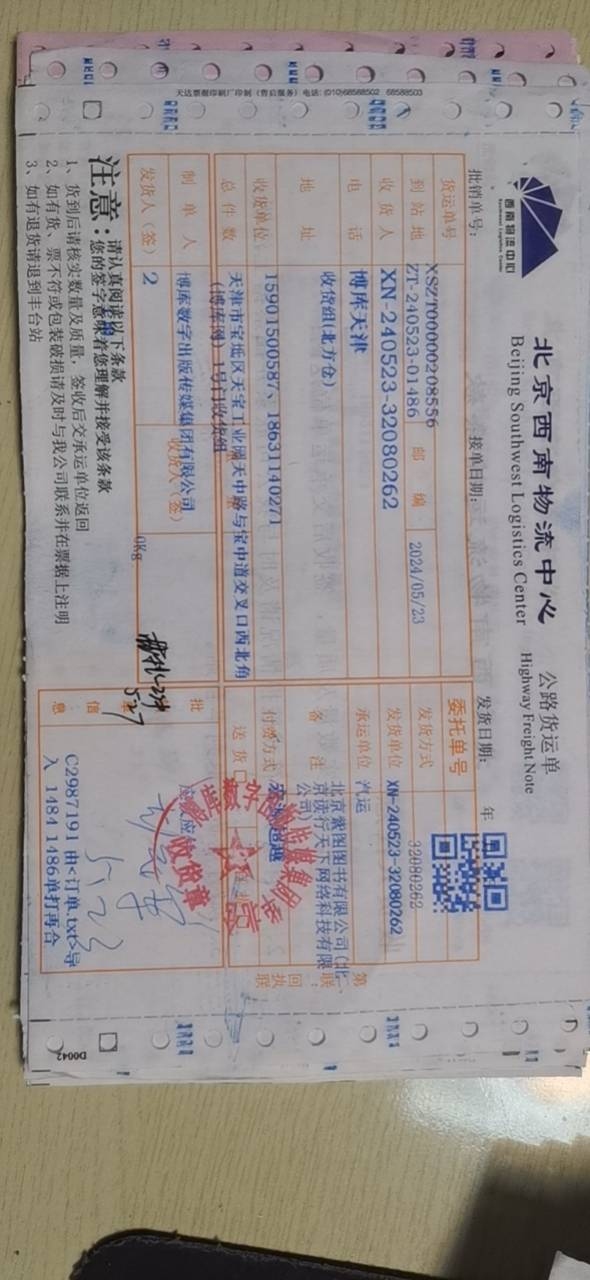 天达票据印刷厂印制 (售后服务) 电话: (010)68588502 68588503
西南物流中心
Southwest Logistics Center
北京西南物流中心 公路货运单
Beijing Southwest Logistics Center Highway Freight Note
批销单号: 接单日期: 发货日期: 年
货运单号 XSZT00000208556 委托单号
到站地 ZT-240523-01486 邮编 2024/05/23 发货方式 32080262
收货人 XN-240523-32080262 发货单位 XN-240523-32080262
电话 博库天津 承运单位 汽运
地址 收货组(北方仓) 备注 北京紫图图书有限公司(北京读行天下网络科技有限公司)
收货单位 15901500587、18631140271 付费方式
总件数 天津市宝坻区天宝工业园天中路与宝中道交叉口西北角(博库网)1号门收货组 送货
制单人 博库数字出版传媒集团有限公司 收货人(签)
发货人(签) 2 0Kg
批
信息
C2987191 由<订单.txt>导入 14841486单打再合
第一联:回执联
收货章
5.22
527
注意:
请认真阅读以下条款
您的签字意味着您理解并接受该条款
1、货到后请核实数量及质量,签收后交承运单位返回
2、如有货、票不符或包装破损请及时与我公司联系并在票据上注明
3、如有退货请退到丰台站
D0042